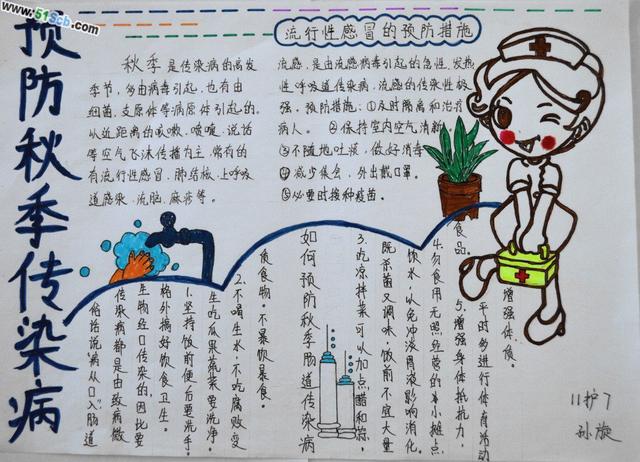 www.51scb.com
预防秋季传染病
流行性感冒的预防措施
秋季是传染病的高发
季节,多由病毒引起,也有由
细菌,支原体等病原体引起的。
从近距离的咳嗽、喷嚏、说话
等空气飞沫传播为主,常有的
有流行性感冒,肺结核,上呼吸
道感染、流脑、麻疹等。
流感,是由流感病毒引起的急性,发热
性呼吸道传染病,流感的传染性极
强。预防措施:①及时隔离和治疗
病人。②保持室内空气清新
③不随地吐痰,做好消毒
④减少集会,外出戴口罩。
⑤必要时接种疫苗。
俗话说"病从口入"肠道
传染病都是由致病微
生物经口传染的,因此要
格外搞好饮食卫生。
1.坚持饭前便后要洗手。
生吃瓜果蔬菜要洗净。
2.不喝生水,不吃腐败变
质食物,不暴饮暴食。
如何预防秋季肠道传染病
3.吃凉拌菜可以加点醋和蒜,
既杀菌又调味,饭前不宜大量
饮水,以免冲淡胃液影响消化。
4.勿食用无照经营的小摊点
食品。
5.增强身体抵抗力,
平时多进行体育活动
增强体质。
11护7
孙旋